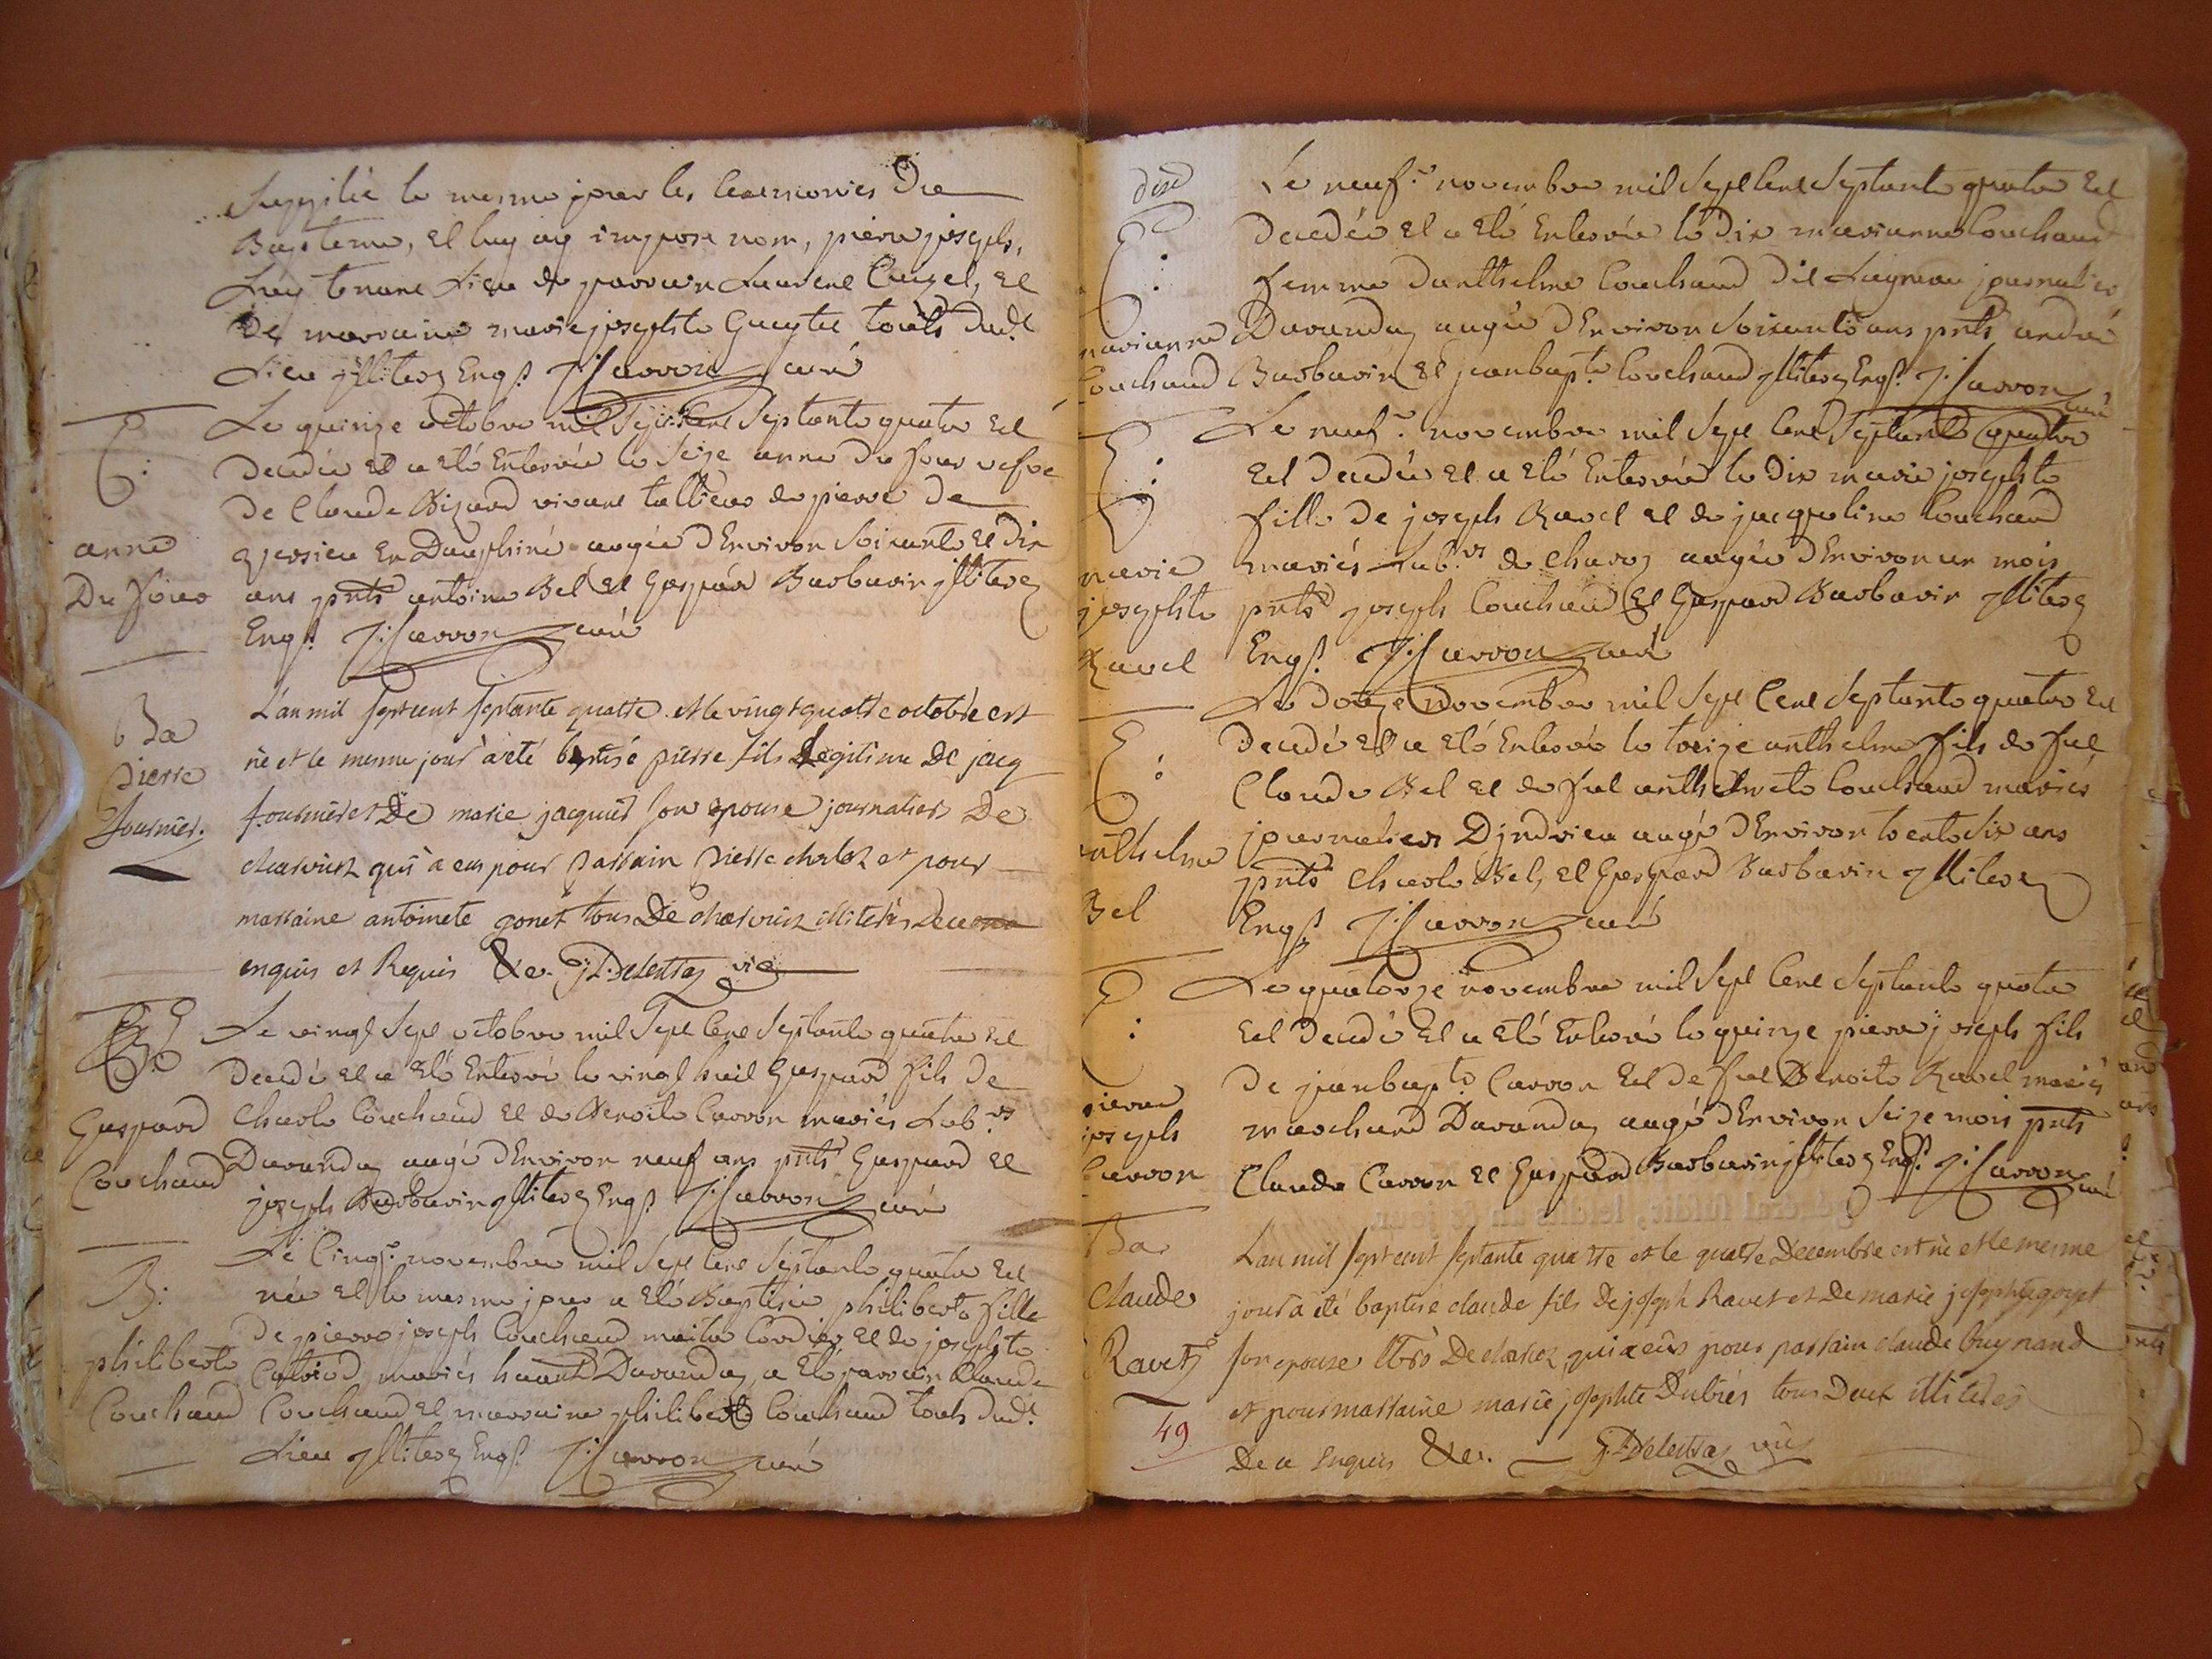 Suppléé le mesme jour les Ceremonies Du
Bapteme, et luy ay imposé nom, pierre joseph,
Luy tenant Lieu de parrain Laurent Cuzel, et
De marraine mariejosephte touts dud.t
Lieu jlliterez Enq.s J: Carron curé
E:
anne
Du four
Le quinze octobre mil Sept Cent Septante quatre est
Decedée et a eté Enterrée le Seize anne Du four vefve
De Claude Bizard vivant tallieur de pierre De
En Dauphiné augée d'Environ Soixante et Dix
ans pnts antoine Bel et Gaspard Barbarin jlliterez
Enq.s J: Carron curé
Ba
pierre
fournier.
L'an mil sept cent septante quatre et le vingt quatre octobre est
né et le mesme jour a eté baptisé pierre fils Legitime De jacq
fournier et De marie jacquier son epouse journalier De
charvieux qui a eus pour parrain pierre charlet et pour
marraine antoinete gonet tous De charvieux illiterés De ce
enquis et Requis &c. J.D. Delestraz vic
E
Gaspard
Couchaud
Le vingt Sept octobre mil Sept Cent Septante quatre est
Decedé et a eté Enterré le vingt huit Gaspard fils De
Charle Couchaud et de Benoite Carron mariés Lab.rs
Davanday augé d'Environ neuf ans pnts Gaspard et
joseph Barbarin jlliterez Enq.s J: Carron curé
B:
philiberte
Couchaud
Le Cinq.e novembre mil Sept Cent Septante quatre est
née et le mesme jour a eté Baptisée philiberte fille
De pierre joseph Couchaud maitre Cordier et de josephte
mariés hants Davanday a eté parrain Claude
Couchaud et marraine philiberte Couchaud touts dud.t
Lieu jlliterez Enq.s J: Carron curé
E:
marianne
Couchaud
Le neuf.e novembre mil Sept Cent Septante quatre est
Decedée et a eté Enterrée le Dix marianne Couchaud
femme d'anthelme Couchaud Dit journalier
Davanday augée d'Environ Soixante ans pnts andré
Barbarin et jeanbapt.e Couchaud jlliterez Enq.s J: Carron
curé
E:
marie
josephte
Ravet
Le neuf.e novembre mil Sept Cent Septante quatre
est Decedée et a eté Enterrée le Dix marie josephte
fille De joseph Ravet et de jacqueline Couchaud
mariés Lab.rs de Charoz augée d'Environ un mois
pnts joseph Couchaud et Gaspard Barbarin jlliterez
Enq.s J: Carron curé
E:
anthelme
Bel
Le Douze novembre mil Sept Cent Septante quatre est
Decedé et a eté Enterré le treize anthelme fils de fut
Claude Bel et de fut anthelmete Couchaud mariés
journaliers D'jndrieu augé d'Environ trente Six ans
pnts Charle Bel, et Gaspard Barbarin jlliterez
Enq.s J: Carron curé
E
:
pierre
joseph
Carron
Le quatorze novembre mil Sept Cent Septante quatre
est Decedé et a eté Enterré le quinze pierre joseph fils
De jeanbapt.e Carron et de fut Benoite Ravet mariés
marchand Davanday augé d'Environ Seize mois pnts
Claude Carron et Gaspard Barbarin jlliterez Enq.s J: Carron
curé
Ba
Claude
Ravet
49
L'an mil sept cent septante quatre et le quatre Decembre est né et le mesme
jour a été baptisé claude fils De joseph Ravet et De marie josephte goyet
son epouse De charoz, qui a eus pour parrain claude buynand
et pour marraine marie josephte Dubiés tous Deux illiterés
De ce enquis &c. J.D. Delestraz vic